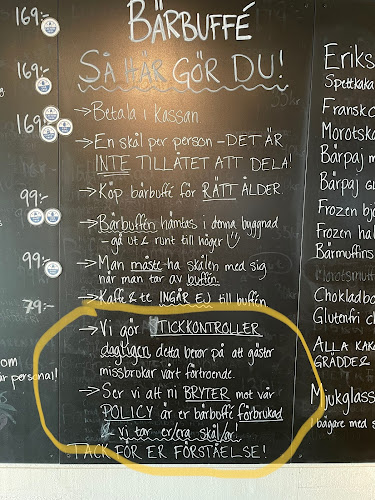 BÄRBUFFÉ
SÅ HÄR GÖR DU!
→ Betala i Kassan
→ En skål per person - DET ÄR
INTE TILLÅTET ATT DELA!
→ Köp bärbuffé för RÄTT ÅLDER.
→ Bärbuffén hämtas i denna byggnad
- gå ut & runt till höger (!)
→ Man måste ha skålen med sig
när man tar av buffén.
→ Kaffe & te INGÅR EJ till buffén
→ Vi gör STICKKONTROLLER
dagligen, detta beror på att gäster
missbrukar vårt förtroende.
→ Ser vi att ni BRYTER mot vår
POLICY är er bärbuffé förbrukad
& vi tar er/era skål/ar!
TACK FÖR ER FÖRSTÅELSE!
169:-
169:-
169
99:-
99:-
79:-
om
personal!
Eriks
Spettkaka
Fransk
Morotska
Bärpaj m
Bärpaj Gl
Frozen bj
Frozen hal
Bärmuffins
Morotsmuff
Chokladbo
Glutenfri ch
ALLA KAK
GRÄDDE
Mjukglass
i bägare med s